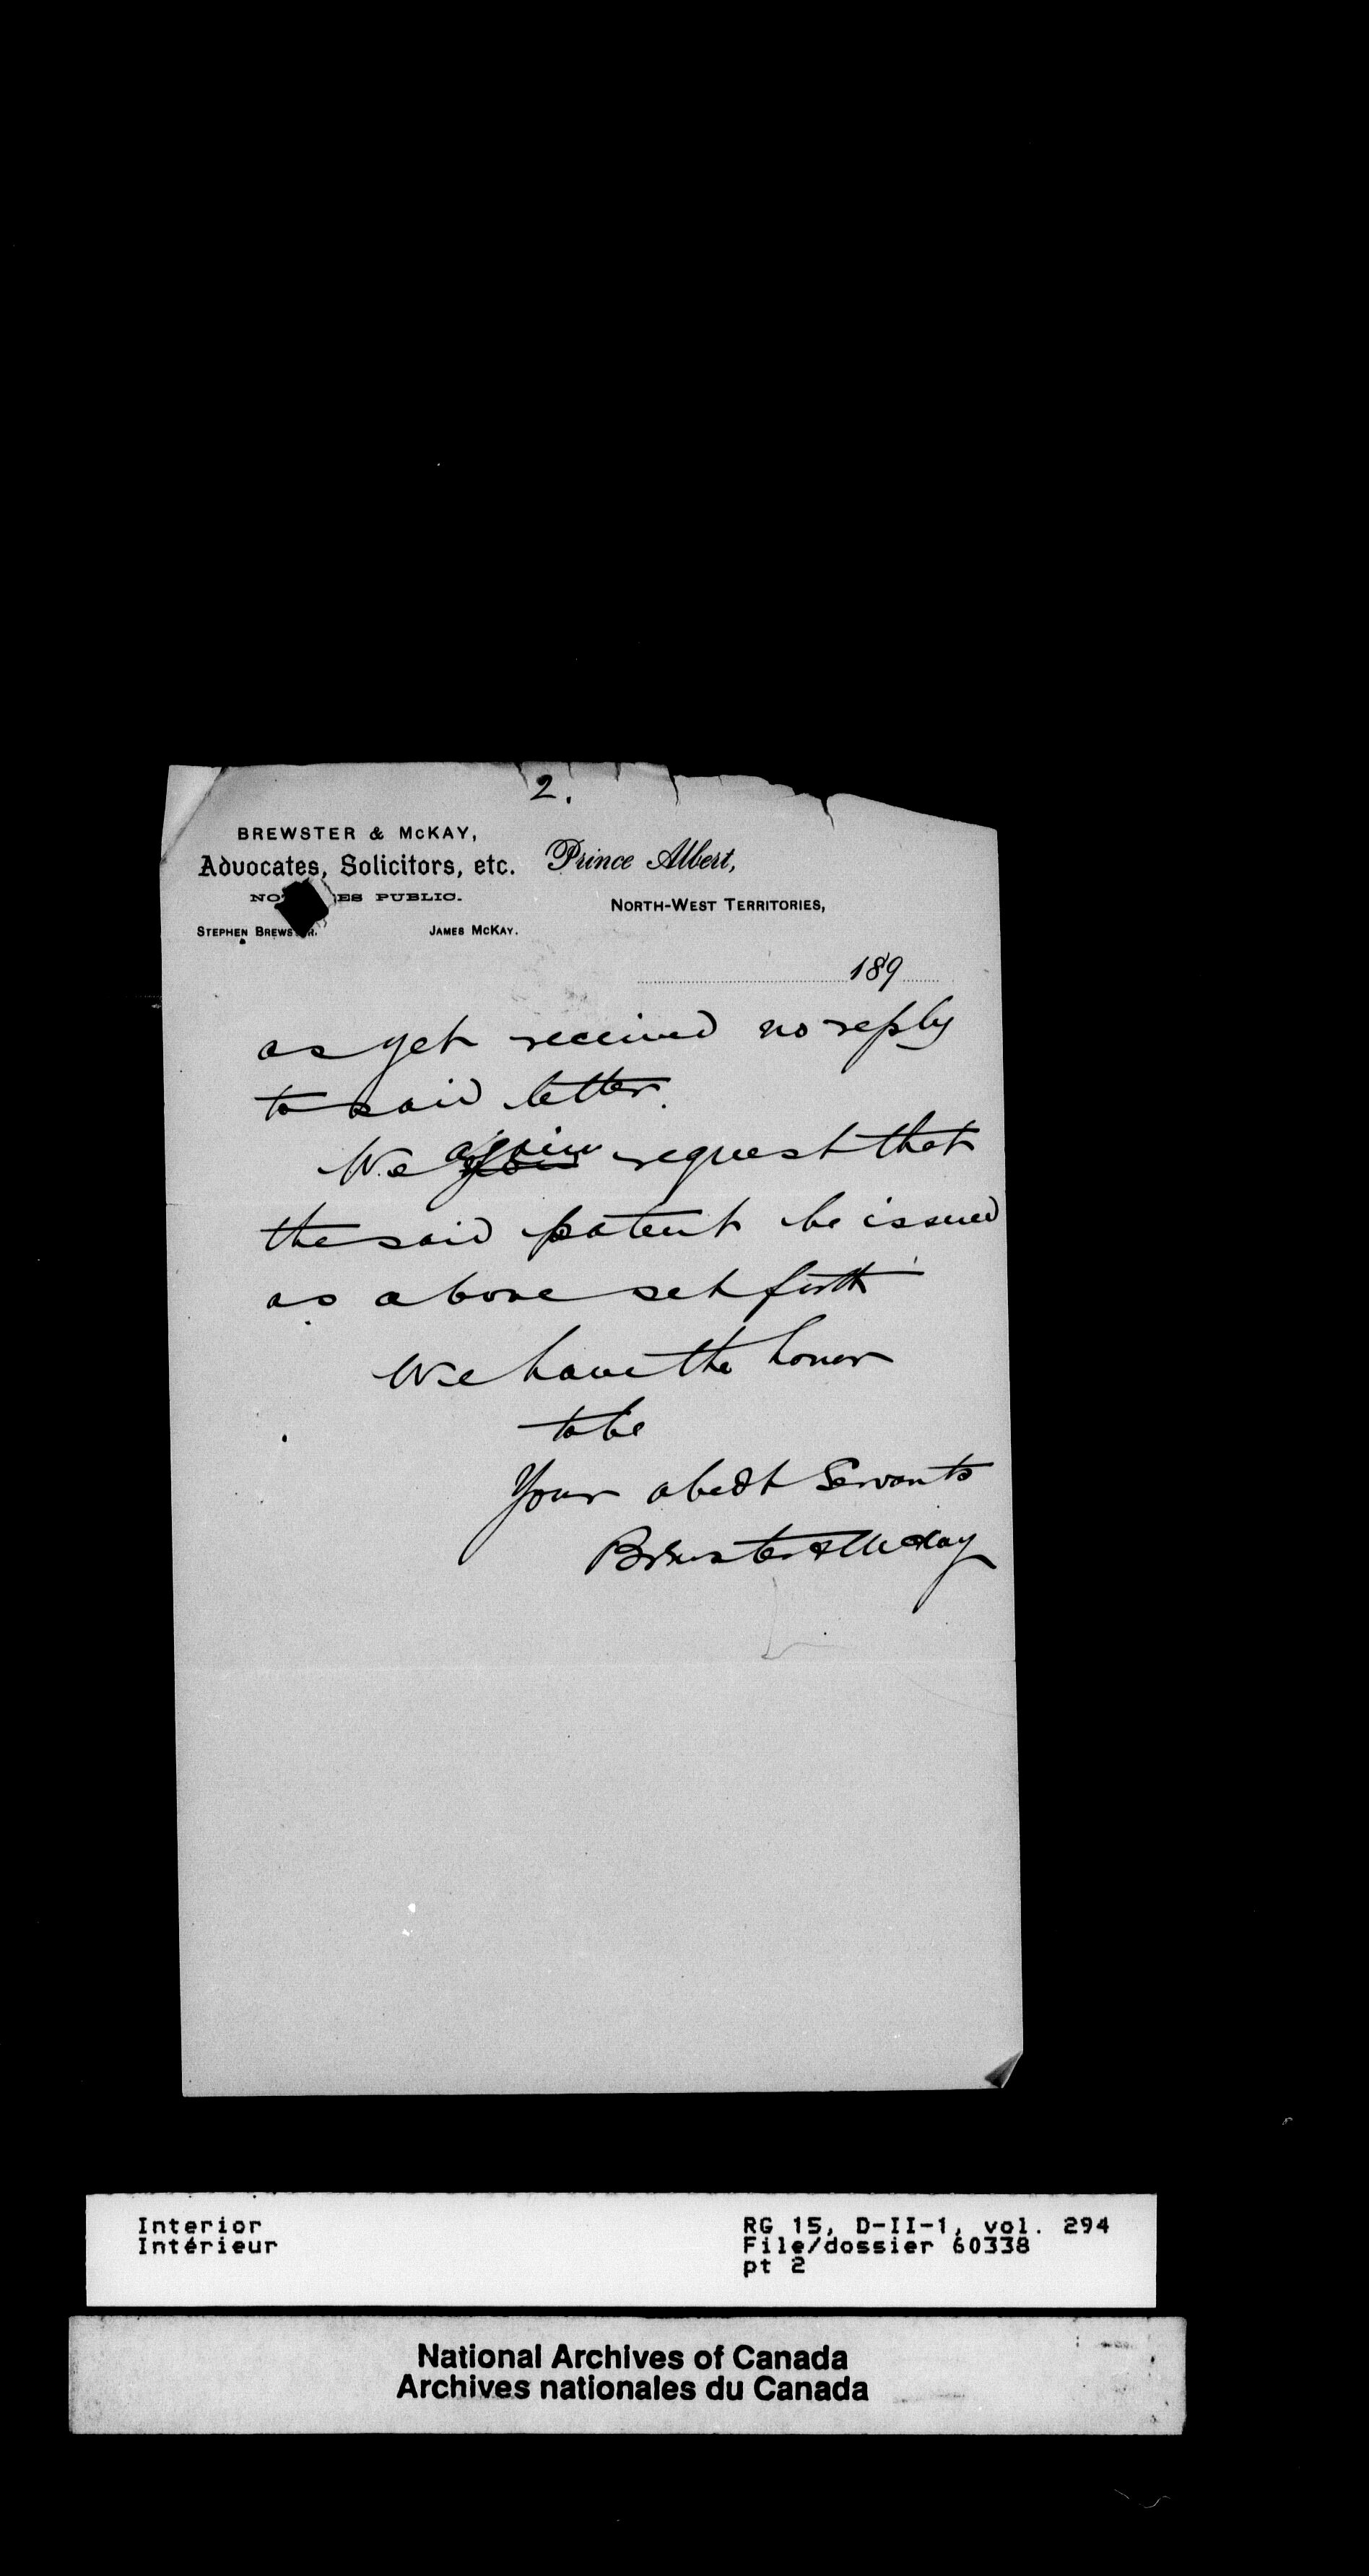 2.
BREWSTER & McKAY,
Advocates, Solicitors, etc.
NO ES PUBLIC.
STEPHEN BREWS R. JAMES McKAY.
Prince Albert,
NORTH-WEST TERRITORIES,
189
as yet received no reply
to said letter.
We again request that
the said patent be issued
as above set forth
We have the honor
to be
Your obedt Servants
Brewster & McKay
Interior
Intérieur
RG 15, D-II-1, vol. 294
File/dossier 60338
pt 2
National Archives of Canada
Archives nationales du Canada